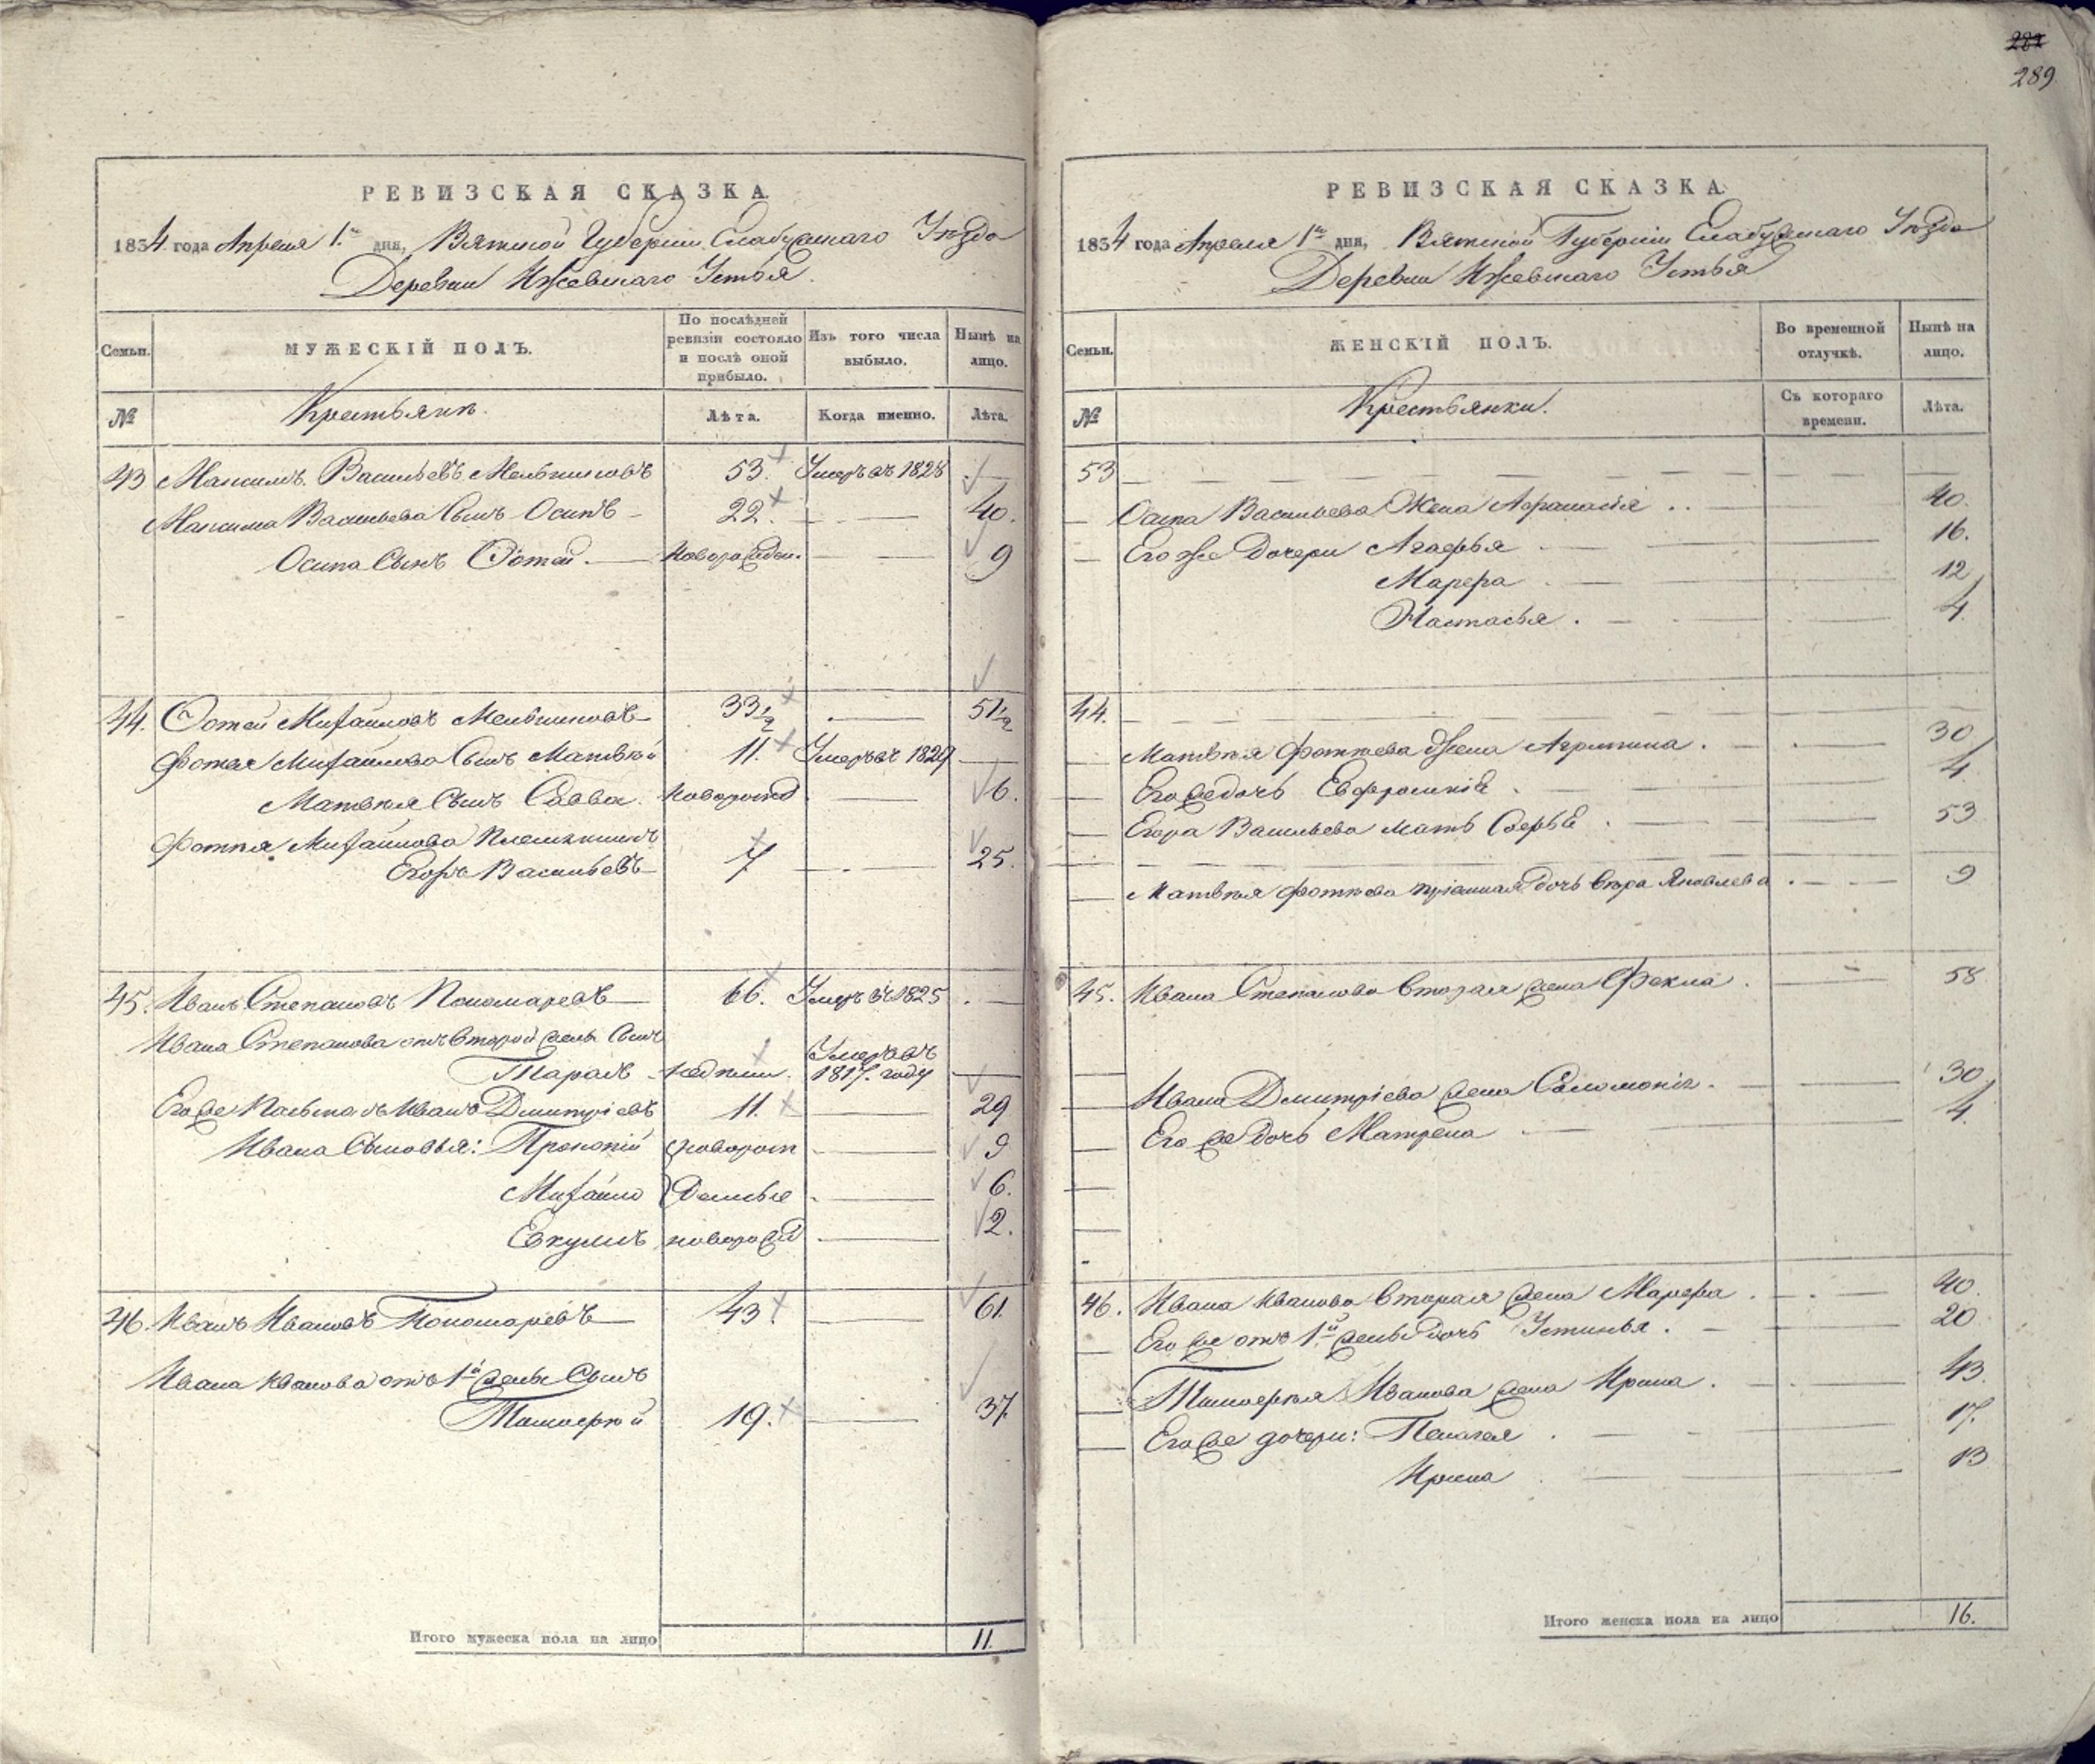 РЕВИЗСКАЯ СКАЗКА
1834 года Апреля 1го дня, Вятской Губернии Елабужскаго Уѣзда
Деревни Ижевскаго Устья.
Семьи.
МУЖЕСКІЙ ПОЛЪ.
По послѣдней ревизіи состояло и послѣ оной прибыло.
Изъ того числа выбыло.
Нынѣ на лицо.
№
Крестьянъ.
Лѣта.
Когда именно.
Лѣта.
43 Максимъ Васильевъ Мельниковъ 53. Умеръ въ 1828
Максима Васильева Сынъ Осипъ 22. 40.
Осипа Сынъ Фотей. Новорожден. 9
44. Фотей Михайловъ Мельниковъ 33½ 51½
Фотея Михайлова Сынъ Матвѣй 11. Умеръ въ 1829
Матвѣя Сынъ Савва новорожд 6.
Фотѣя Михайлова Племянникъ
Егоръ Васильевъ 7 25.
45. Иванъ Степановъ Пономаревъ 66. Умеръ въ 1825
Ивана Степанова отъ второй жены Сынъ
Тарасъ недѣли. Умеръ въ 1817. году
Его же Иванъ Дмитріевъ 11. 29
Ивана Сыновья: Прокопій новорож 9
Михайло денные 6.
Евкумъ новорожд 2.
46. Иванъ Ивановъ Пономаревъ 43 61.
Ивана Иванова отъ 1й жены Сынъ
Тимофей 19. 37.
Итого мужеска пола на лицо 11.
282
289
РЕВИЗСКАЯ СКАЗКА
1834 года Апреля 1го дня, Вятской Губерніи Елабужскаго Уѣзда
Деревни Ижевскаго Устья
Семьи.
ЖЕНСКІЙ ПОЛЪ.
Во временной отлучкѣ.
Нынѣ на лицо.
№
Крестьянки.
Съ котораго времени.
Лѣта.
53
Осипа Васильева Жена Афанасія 40.
Его же Дочери Агафья 16.
Марфа 12
Настасья 4.
44.
Матвѣя Фотѣева Жена Агрипина 30
Его же дочь Евфросинія 4
Егора Васильева мать Софья 53
Матвѣя Фотѣева пріемная дочь Вѣра Яковлева 9
45. Ивана Степанова вторая жена Фекла 58
Ивана Дмитріева жена Соломонія 30
Его же дочь Матрена 4.
46. Ивана Иванова вторая жена Марфа 40.
Его же отъ 1й жены дочь Устинья 20
Тимофея Иванова жена Ирина 43
Его же дочери: Пелагея 17.
Ирина 13
Итого женска пола на лицо 16.